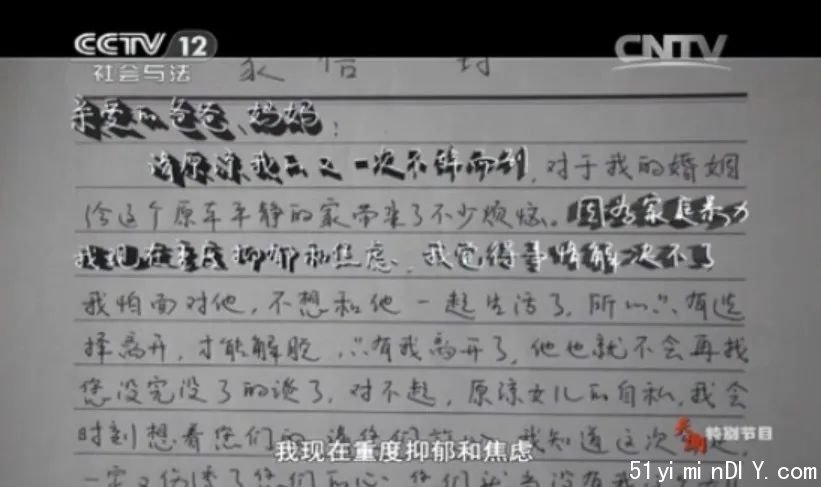 CCTV 12
社会与法
CNTV
家信
亲爱的爸爸、妈妈:
请原谅我又一次不辞而别,对于我的婚姻
给这个原本平静的家带来了不少烦恼。因为家庭暴力
我现在重度抑郁和焦虑、我觉得事情解决不了
我怕面对他,不想和他一起生活了,所以只有选
择离开,才能解脱,只有我离开了,他也就不会再找
您没完没了的谈了,对不起,原谅女儿的自私,我会
时刻想着您们的 我知道这次
我现在重度抑郁和焦虑
特别节目
一定又伤透了您们的心
51yiminDIY.com